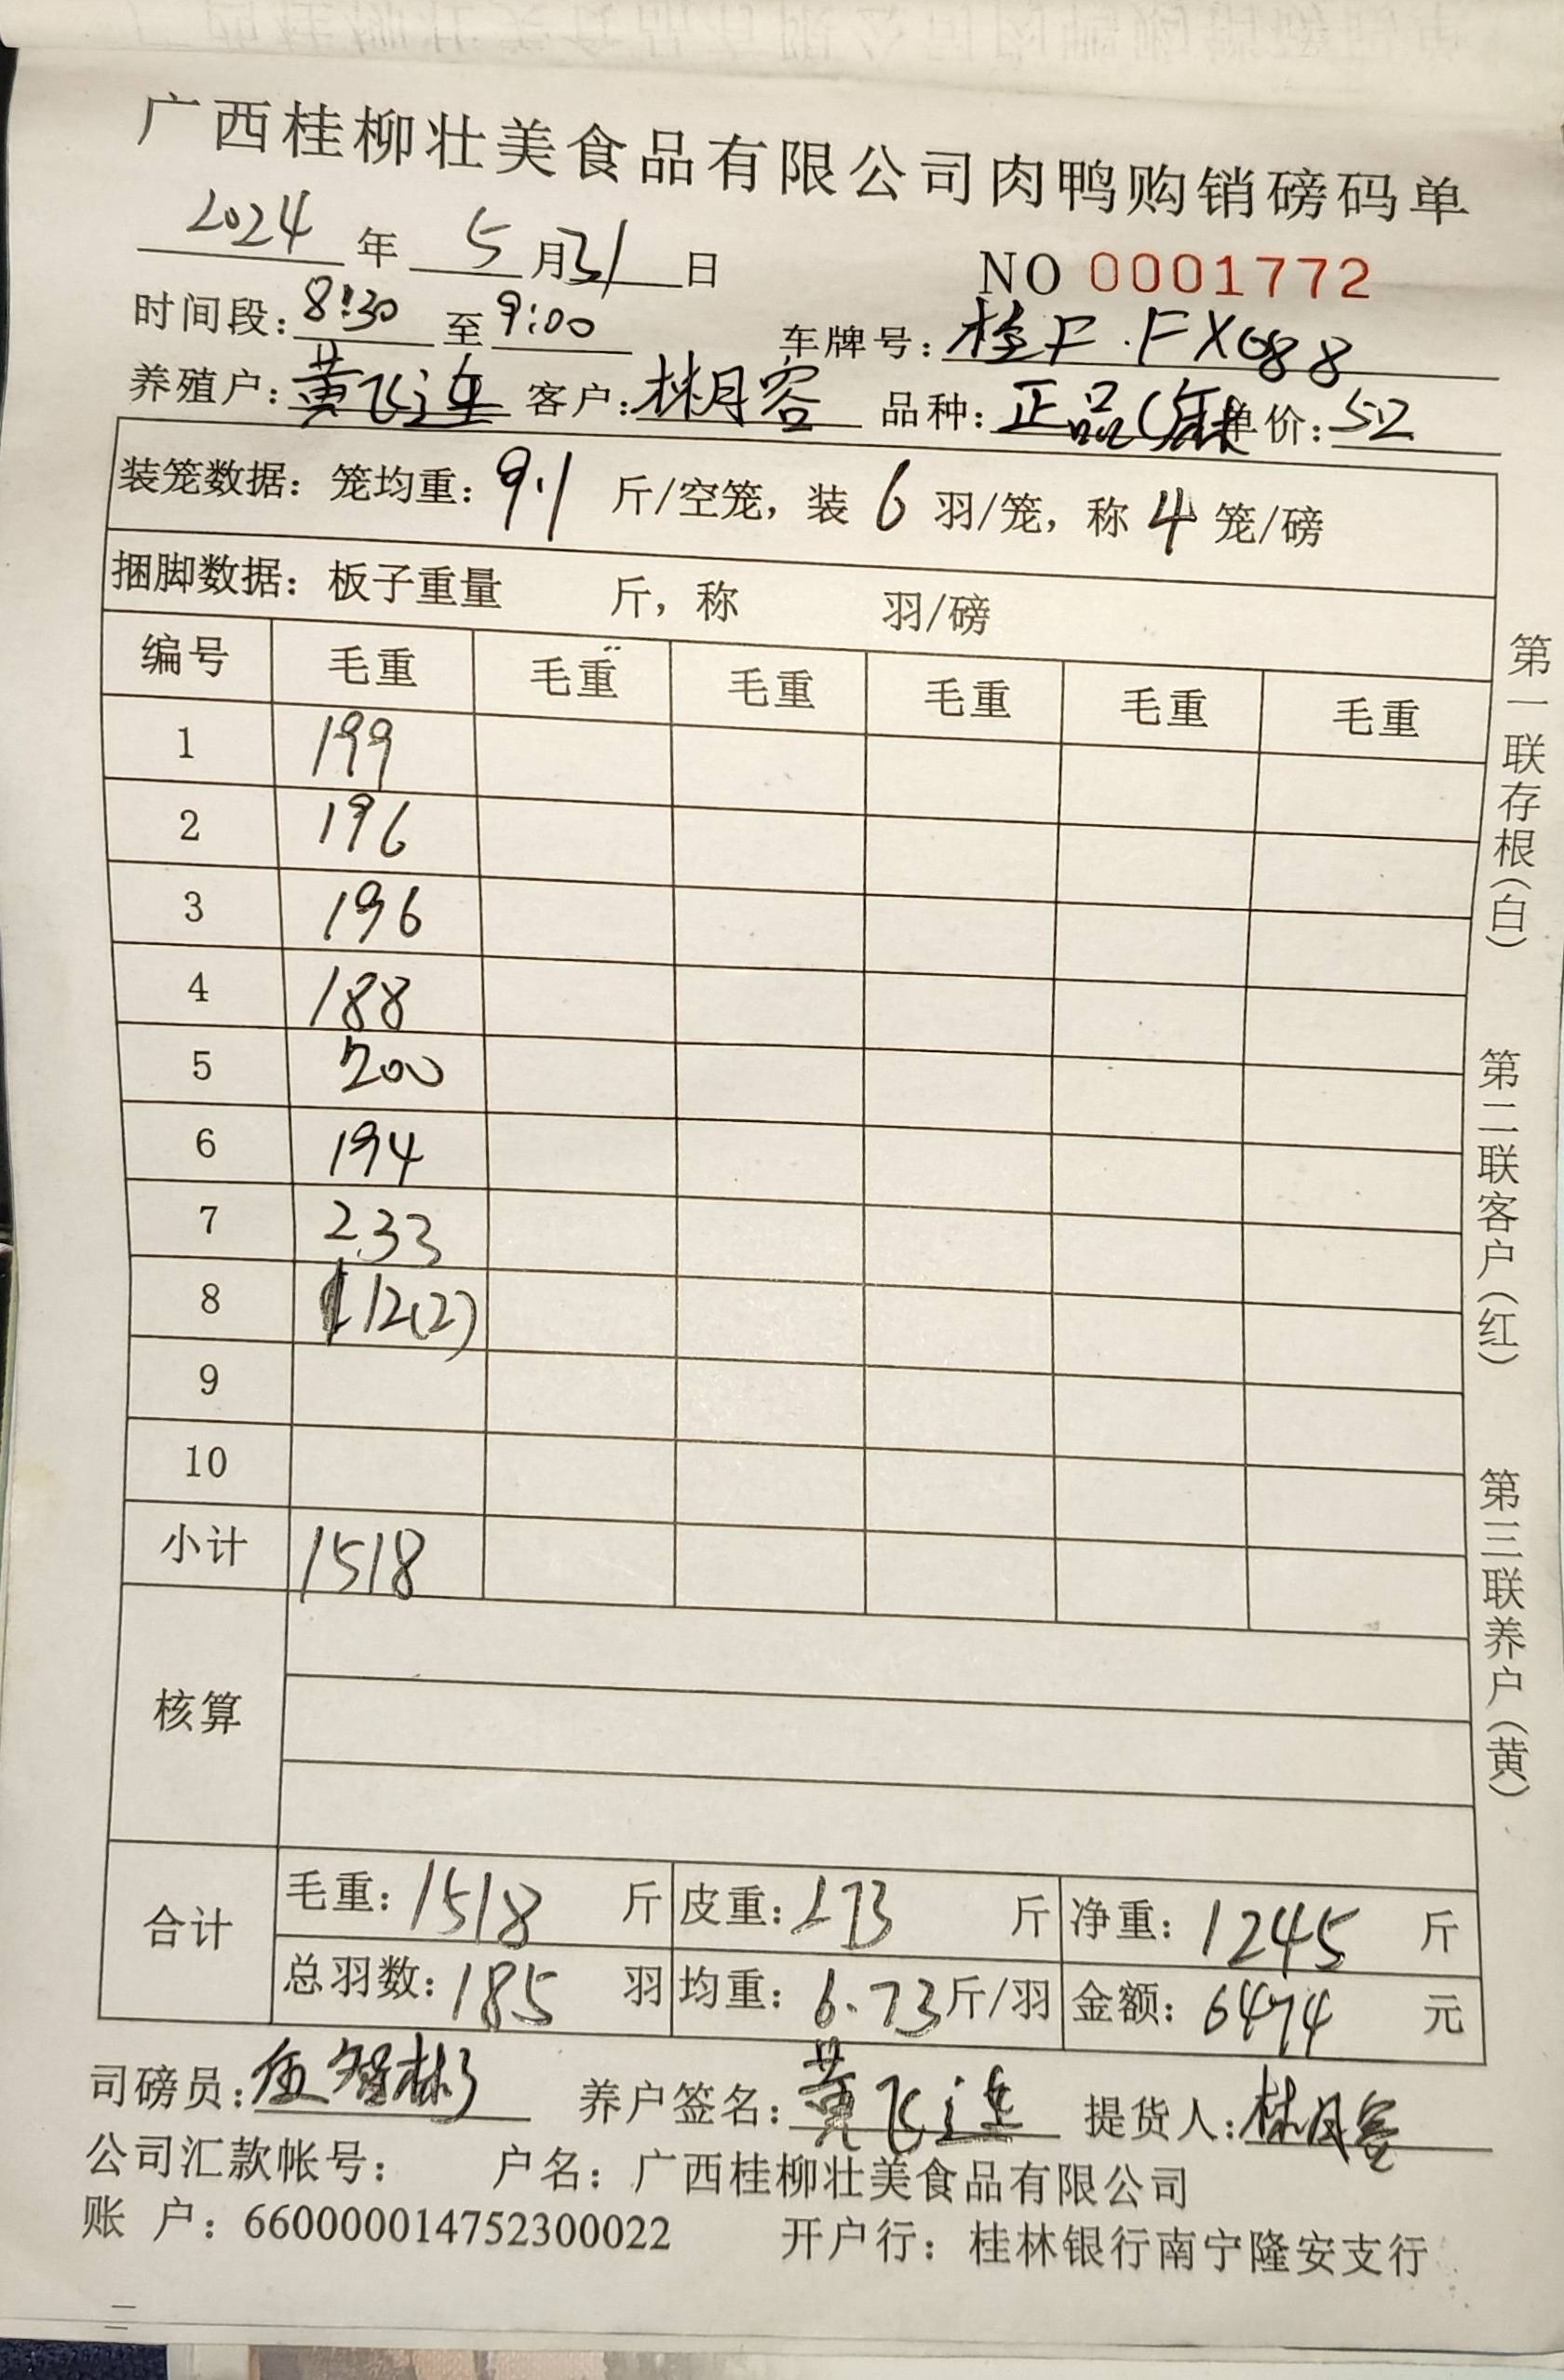 广西桂柳壮美食品有限公司肉鸭购销磅码单
2024年 5月31日 NO 0001772
时间段：8:30 至 9:00 车牌号：桂F·FX688
养殖户：黄飞连 客户：林月容 品种：正品 单价：5.2
装笼数据：笼均重：9.1 斤/空笼，装 6 羽/笼，称 4 笼/磅
捆脚数据：板子重量 斤，称 羽/磅
编号 毛重 毛重 毛重 毛重 毛重 毛重
1 199
2 196
3 196
4 188
5 200
6 194
7 233
8 112(2)
9
10
小计 1518
核算
合计 毛重：1518 斤 皮重：273 斤 净重：1245 斤
总羽数：185 羽 均重：6.73斤/羽 金额：6474 元
司磅员：伍智彬 养户签名：黄飞连 提货人：林月容
公司汇款帐号： 户名：广西桂柳壮美食品有限公司
账 户：660000014752300022 开户行：桂林银行南宁隆安支行
第一联存根（白）
第二联客户（红）
第三联养户（黄）